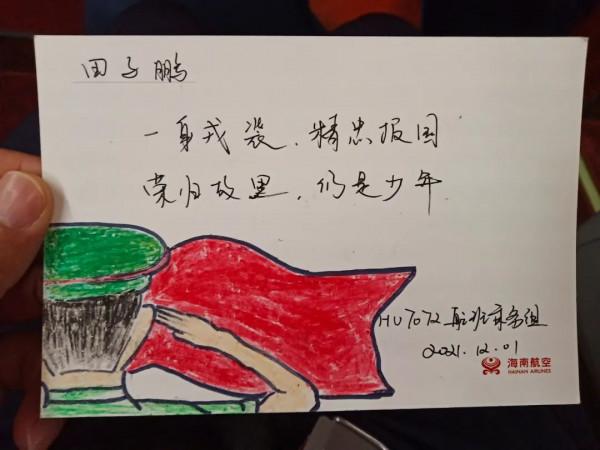 田子鹏
一身戎装、精忠报国
荣归故里、仍是少年
HU7072航班乘务组
2021.12.01
海南航空
HAINAN AIRLINES